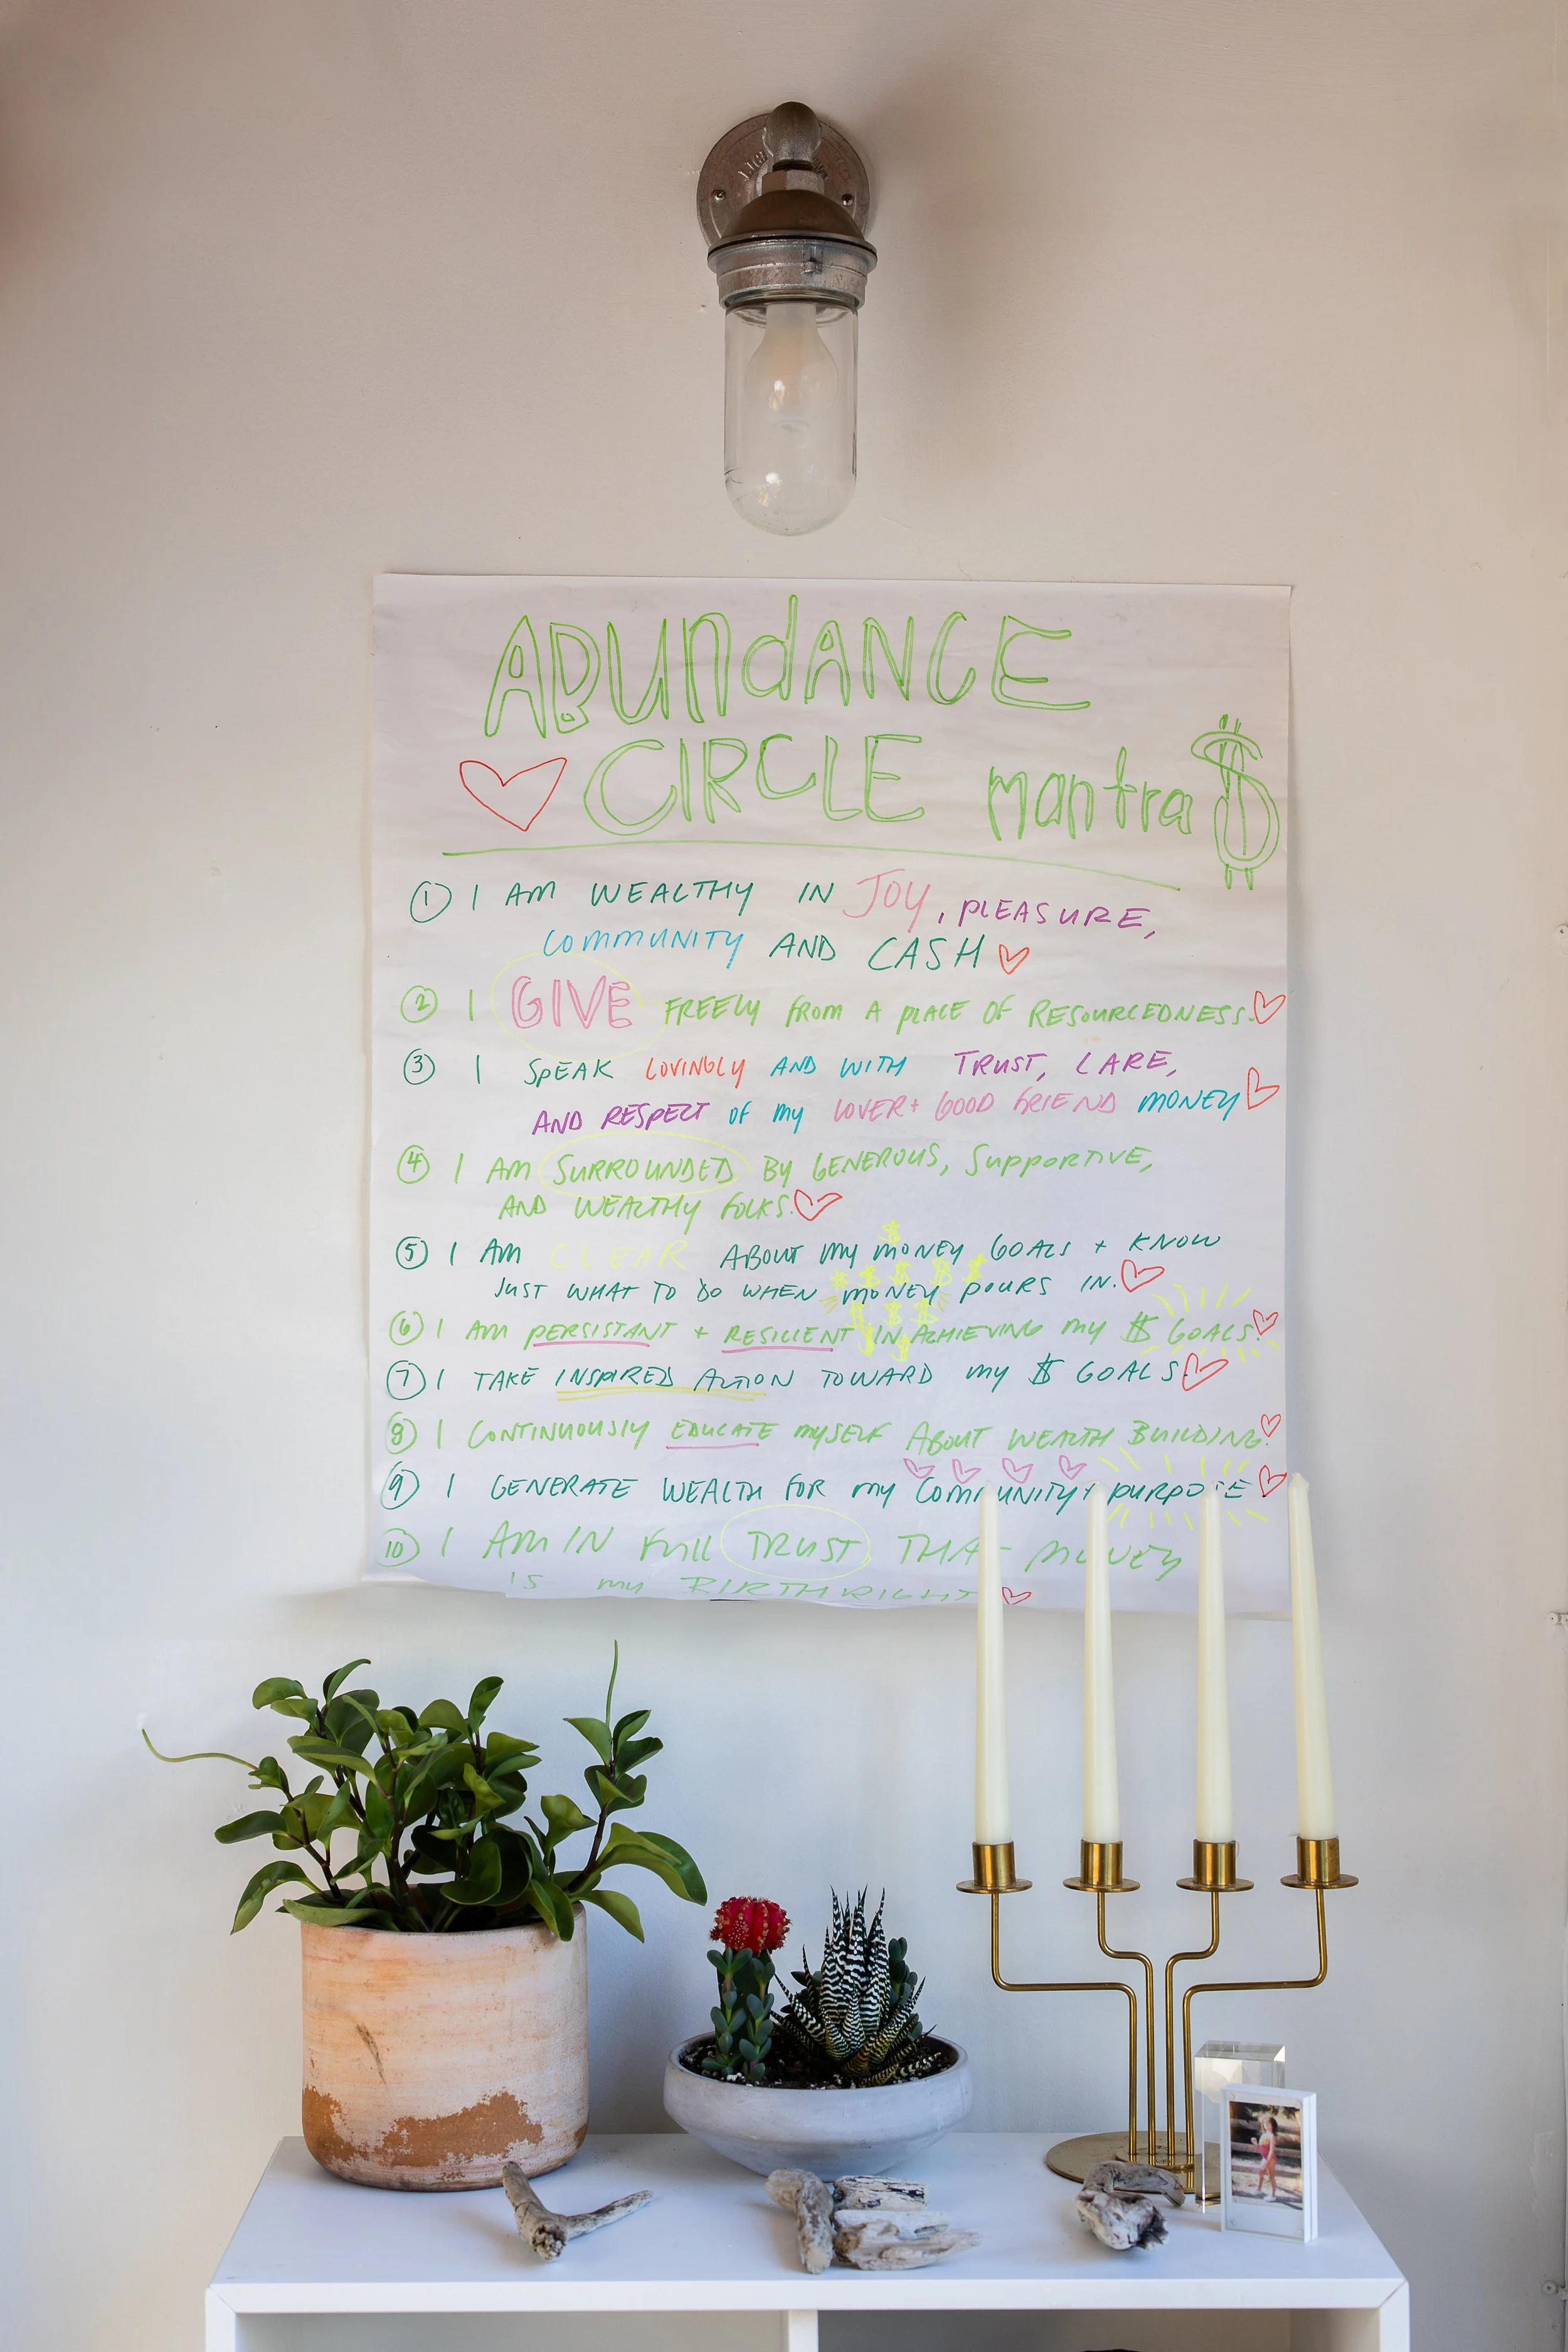 ABUNdANCE
CIRCLE mantra $
① I AM WEALTHY IN JOY, PLEASURE,
COMMUNITY AND CASH
② I GIVE FREELY FROM A PLACE OF RESOURCEDNESS.
③ I SPEAK LOVINGLY AND WITH TRUST, CARE,
AND RESPECT OF MY LOVER + GOOD FRIEND MONEY
④ I AM SURROUNDED BY GENEROUS, SUPPORTIVE,
AND WEALTHY FOLKS.
⑤ I AM CLEAR ABOUT MY MONEY GOALS + KNOW
JUST WHAT TO DO WHEN MONEY POURS IN.
⑥ I AM PERSISTANT + RESILIENT IN ACHIEVING MY $ GOALS.
⑦ I TAKE INSPIRED ACTION TOWARD MY $ GOALS.
⑧ I CONTINUOUSLY EDUCATE MYSELF ABOUT WEALTH BUILDING.
⑨ I GENERATE WEALTH FOR MY COMMUNITY + PURPOSE
⑩ I AM IN FULL TRUST THAT MONEY
IS MY BIRTHRIGHT